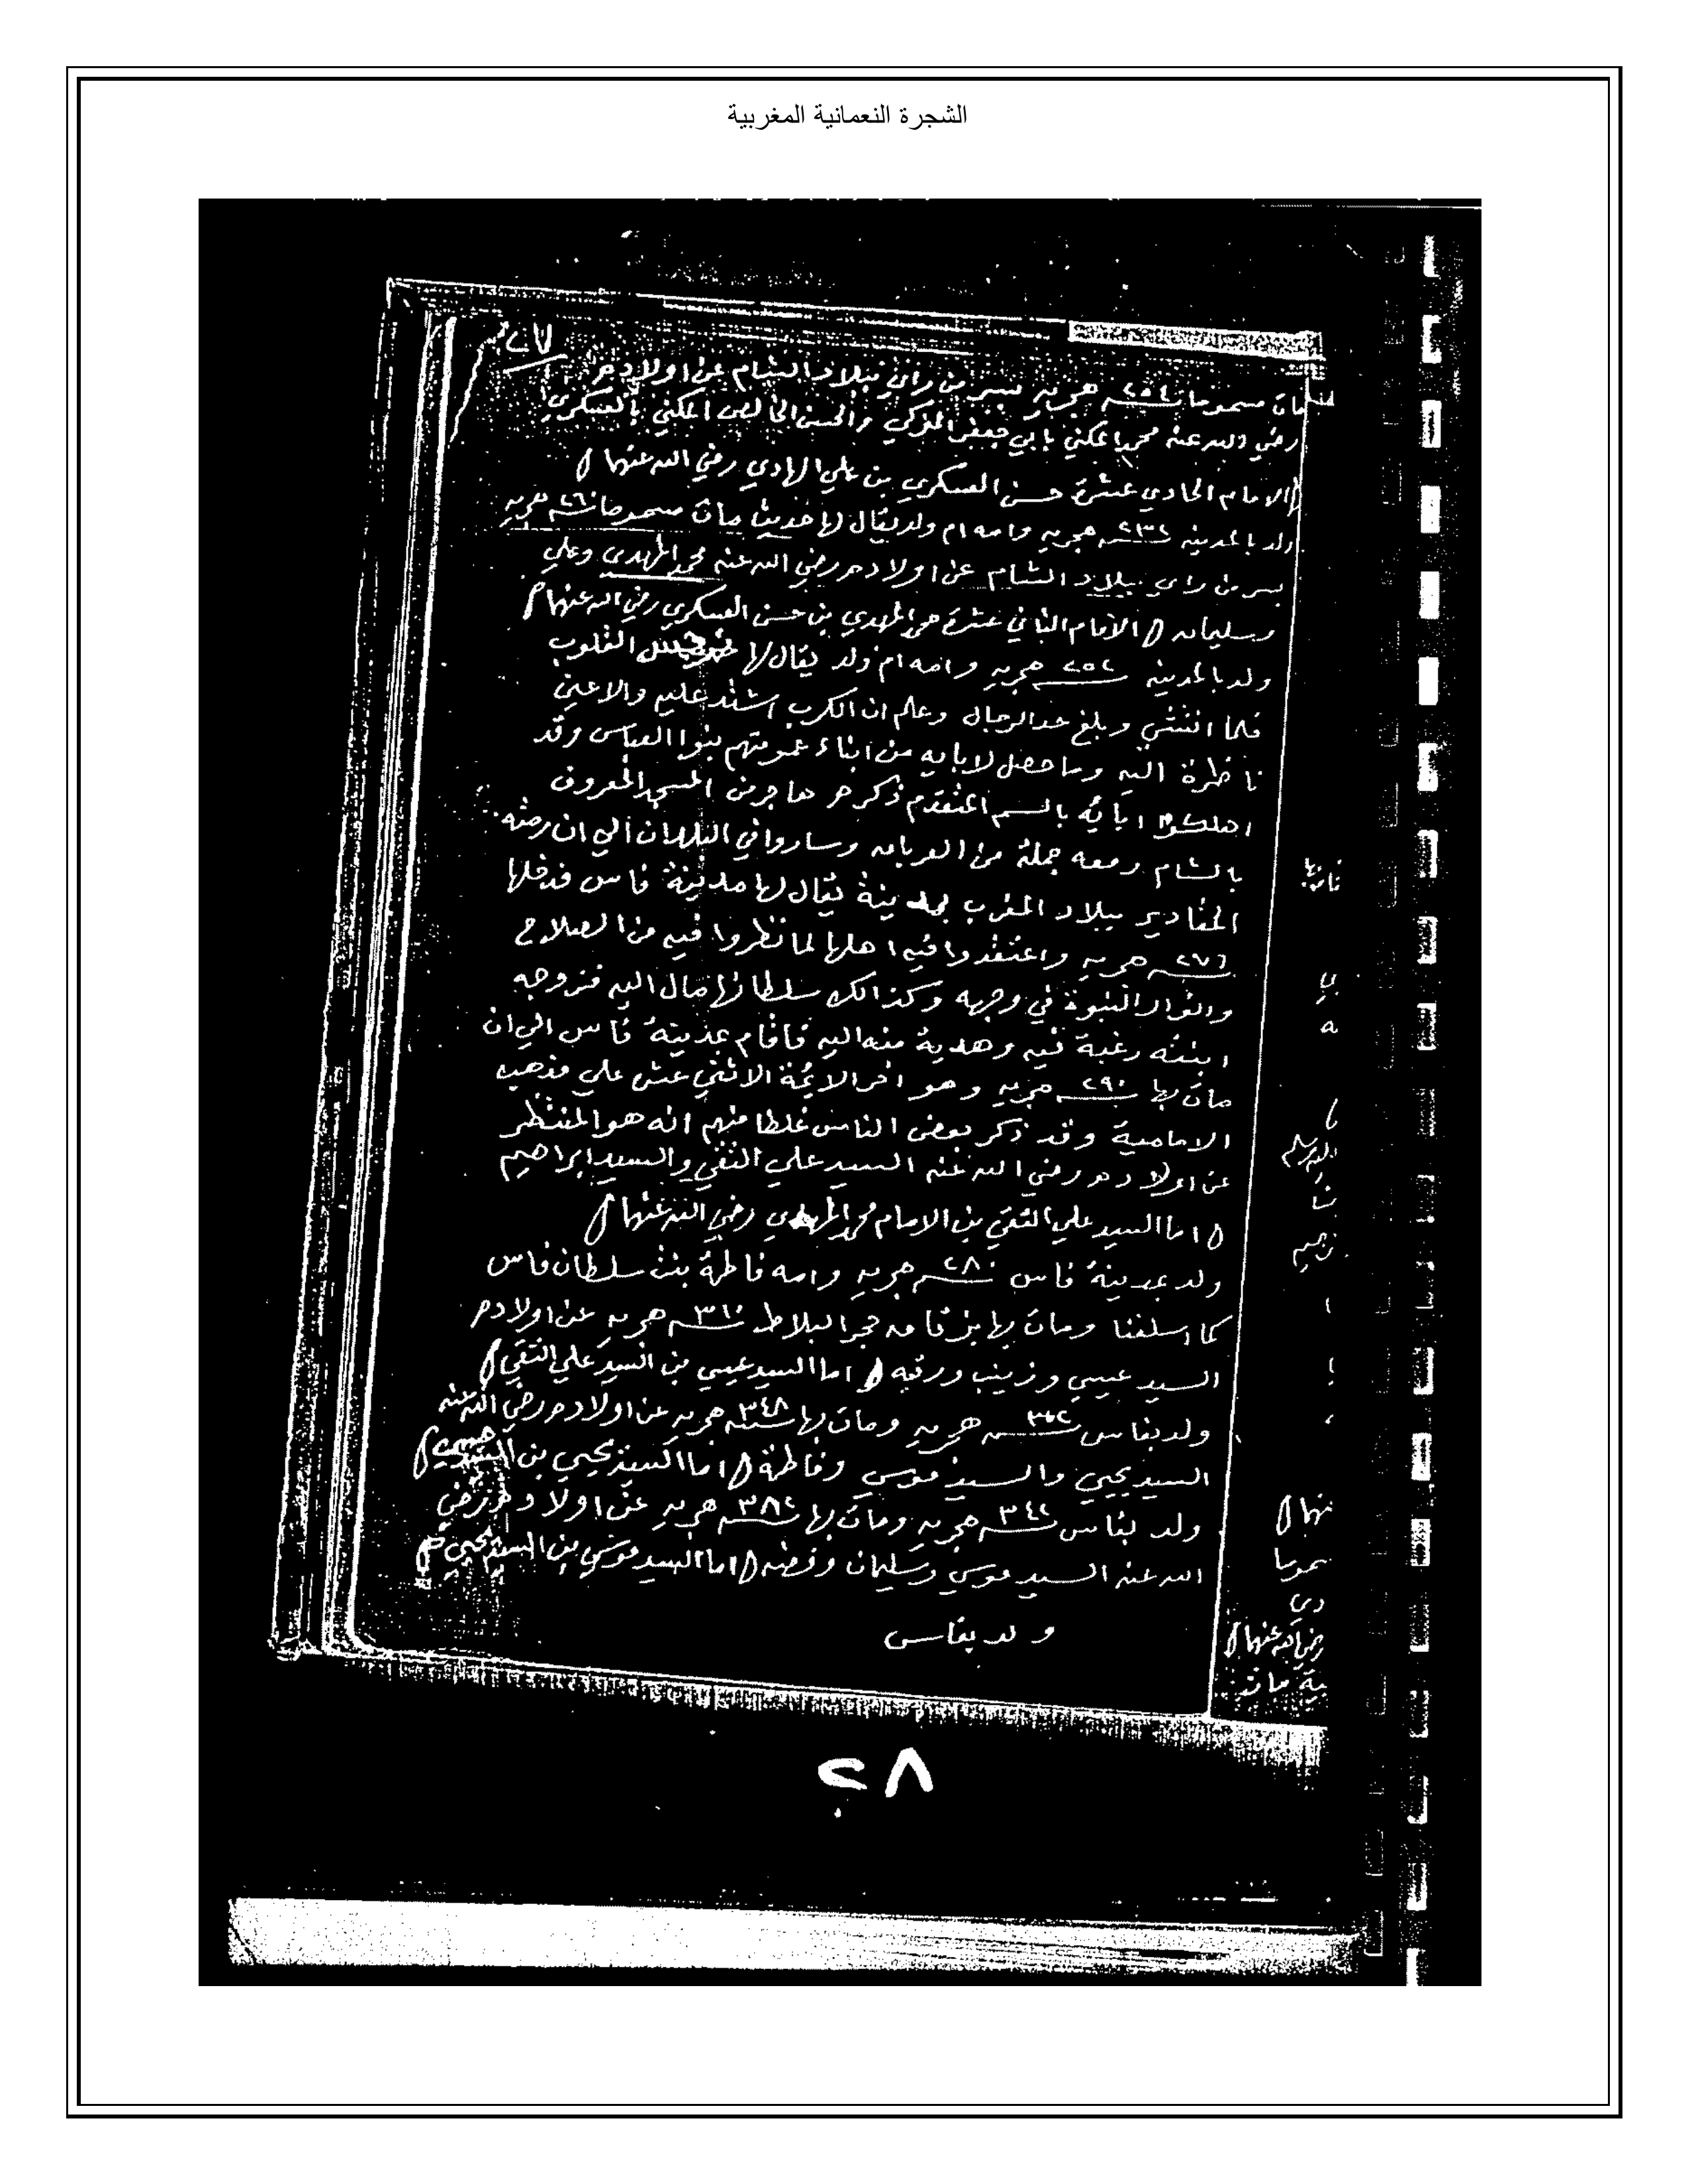 الشجرة النعمانية المغربية
مات مسموما ٢٥٤ هجريه بسر من راي ببلاد الشام عن اولاده
رضي الله عنه محمد المكني بابي جعفر والحسن الخالص المكني بالعسكري
الامام الحادي عشرة حسن العسكري بن علي الهادي رضي الله عنهما
ولد بالمدينه ٢٣٢ هجريه وامه ام ولد يقال لها حديثا مات مسموما ٢٦٠ هجريه
بسر من راي ببلاد الشام عن اولاده رضي الله عنه محمد المهدى وعلي
وسليمان الامام الثاني عشرة محمد المهدي بن حسن العسكري رضي الله عنهما
ولد بالمدينه ٢٥٢ هجريه وامه ام ولد يقال لها القلوب
فلما انتشي وبلغ حد الرجال وعلم ان الكرب اشتد عليه والاعين
ناظرة اليه وما حصل لابايه من ابناء عمومتهم بنوا العباس وقد
اهلكوا ابايه بالسم المتقدم ذكره هاجر من المسجد المعروف
بالشام ومعه جملة من العربان وساروا في البلدان الي ان رمته
المقادير ببلاد المغرب بمدينة يقال لها مدينة فاس فدخلها
٢٧٦ هجريه واعتقدوا فيه اهلها لما نظروا فيه من الصلاح
وانوار النبوة في وجهه وكذالك سلطانها مال اليه فزوجه
ابنته رغبة فيه وهدية منه اليه فاقام بمدينة فاس الي ان
مات بها ٢٩٠ هجريه وهو اخر الائمة الاثني عشر علي مذهب
الامامية وقد ذكر بعض الناس غلطا منهم انه هو المنتظر
عن اولاده رضي الله عنه السيد علي التقي والسيد ابراهيم
اما السيد علي التقي بن الامام محمد المهدي رضي الله عنهما
ولد بمدينة فاس ٢٨٠ هجريه وامه فاطمة بنت سلطان فاس
كما اسلفنا ومات بها بزقاق حجر البلاط ٣١٠ هجريه عن اولاده
السيد عيسي وزينب ورقيه اما السيد عيسي بن السيد علي التقي
ولد بفاس هجريه ومات بها ٣٤٨ هجريه عن اولاده رضي الله عنه
السيد يحيي والسيد موسي وفاطمة اما السيد يحيي بن السيد عيسي
ولد بفاس ٣٤٢ هجريه ومات بها ٣٨٢ هجريه عن اولاده رضي
الله عنه السيد موسي وسليمان وفضه اما السيد موسي بن السيد يحيي
ولد بفاس
رضي الله عنهما
٢٨